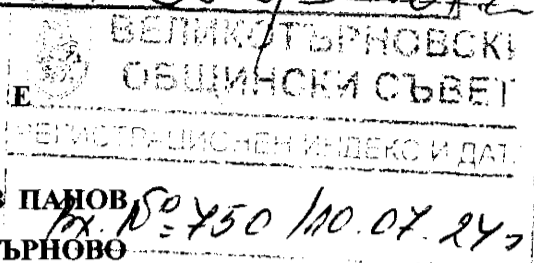 ВЕЛИКОТЪРНОВСКИ
ОБЩИНСКИ СЪВЕТ
Е
РЕГИСТРАЦИОНЕН ИНДЕКС И ДАТ
ПАНОВ
Вх. №: 750 /10.07.24г
ТЪРНОВО